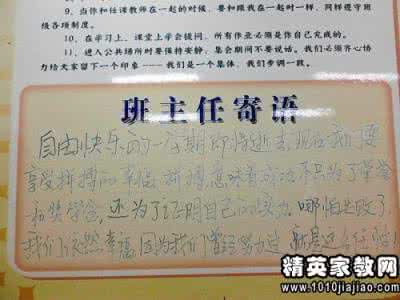 9、当你和任课教师在一起的时候，要和跟我在一起时一样，同样遵守班
级各项制度。
10、在学习上，课堂上学会提问，所有作业必须是你自己完成的。
11、进入公共场所时要保持安静；集会期间不要说话。我们必须齐心协
力给大家留下一个印象——我们是一个集体，我们步调一致。
班主任寄语
自由快乐的一 期即将逝去 现在我们要
享受拼搏的幸福 拼搏意味着成功 不只为了荣誉
和奖学金，还为了证明自己的 哪怕失败了
我们依然幸福，因为我们曾经努力过
精英家教网
www.1010jiajiao.com